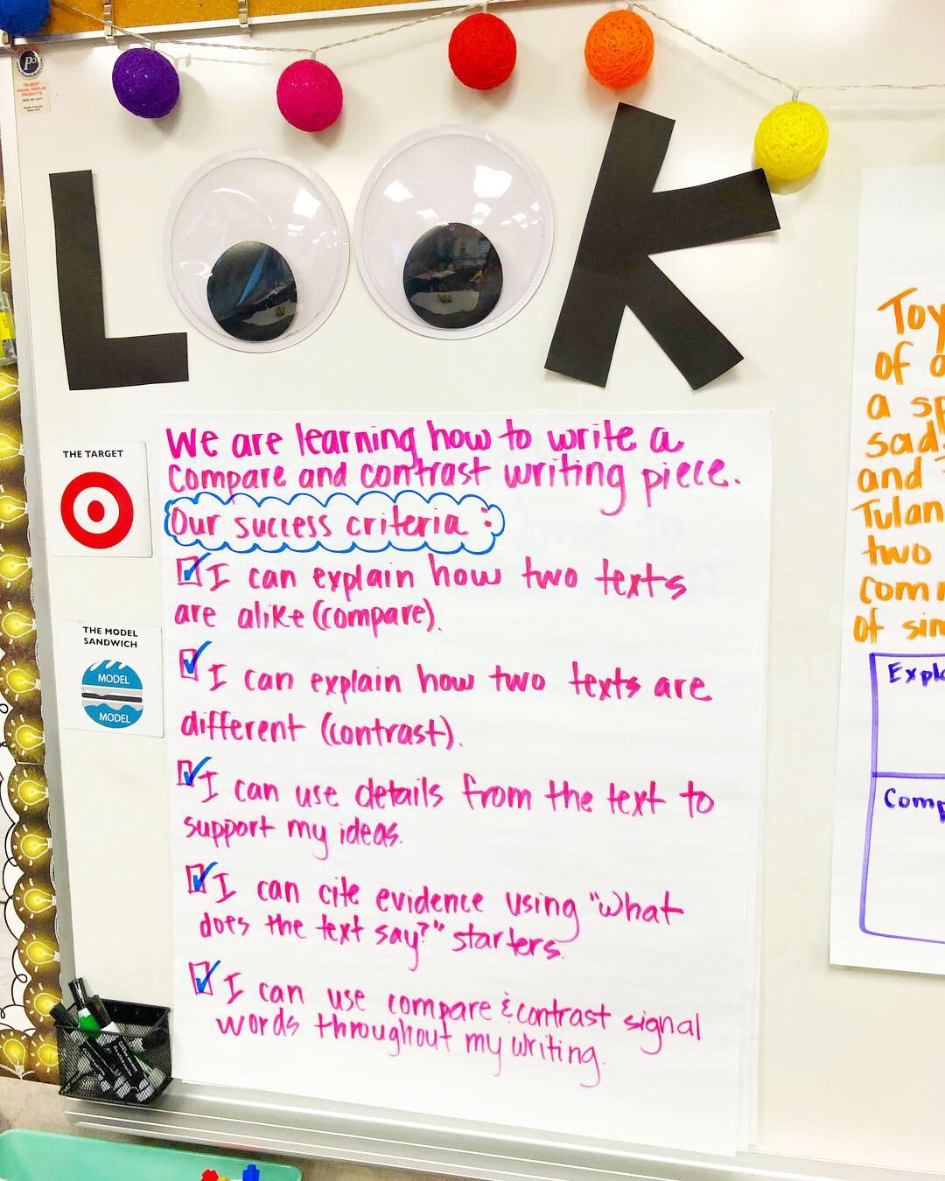 LOOK
THE TARGET
We are learning how to write a
compare and contrast writing piece.
Our success criteria:
I can explain how two texts
are alike (compare).
THE MODEL
SANDWICH
MODEL
MODEL
I can explain how two texts are
different (contrast).
I can use details from the text to
support my ideas.
I can cite evidence using "What
does the text say?" starters.
I can use compare & contrast signal
words throughout my writing.
Toy
of a
a sp
sadl
and
Tulan
two
comm
of sim
Expl
Comp